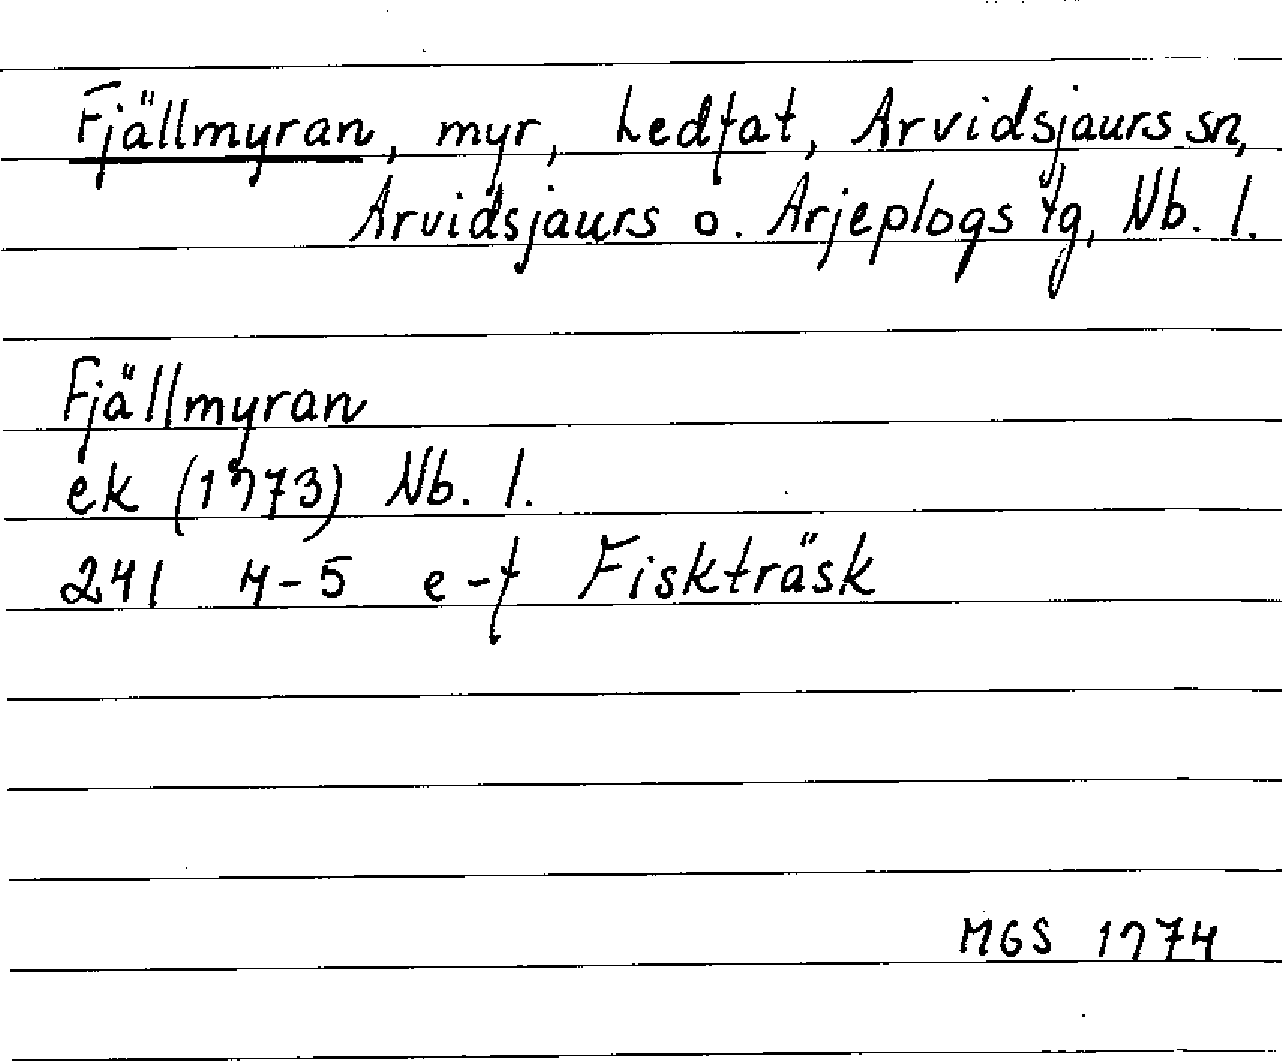 Fjällmyran, myr, Ledfat, Arvidsjaurs sn,
Arvidsjaurs o. Arjeplogs tg, Nb. l.
Fjällmyran
ek (1973) Nb. l.
241 4-5 e-f Fiskträsk
MGS 1974